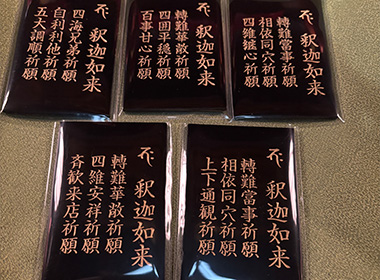 釈迦如来
四海兄弟祈願
自利利他祈願
五大調順祈願
釈迦如来
轉難華敞祈願
四囲平穏祈願
百事甘心祈願
釈迦如来
轉難當事祈願
相依同穴祈願
四維心祈願
釈迦如来
轉難華敞祈願
四維安祥祈願
斉歓来店祈願
釈迦如来
轉難當事祈願
相依同穴祈願
上下通観祈願